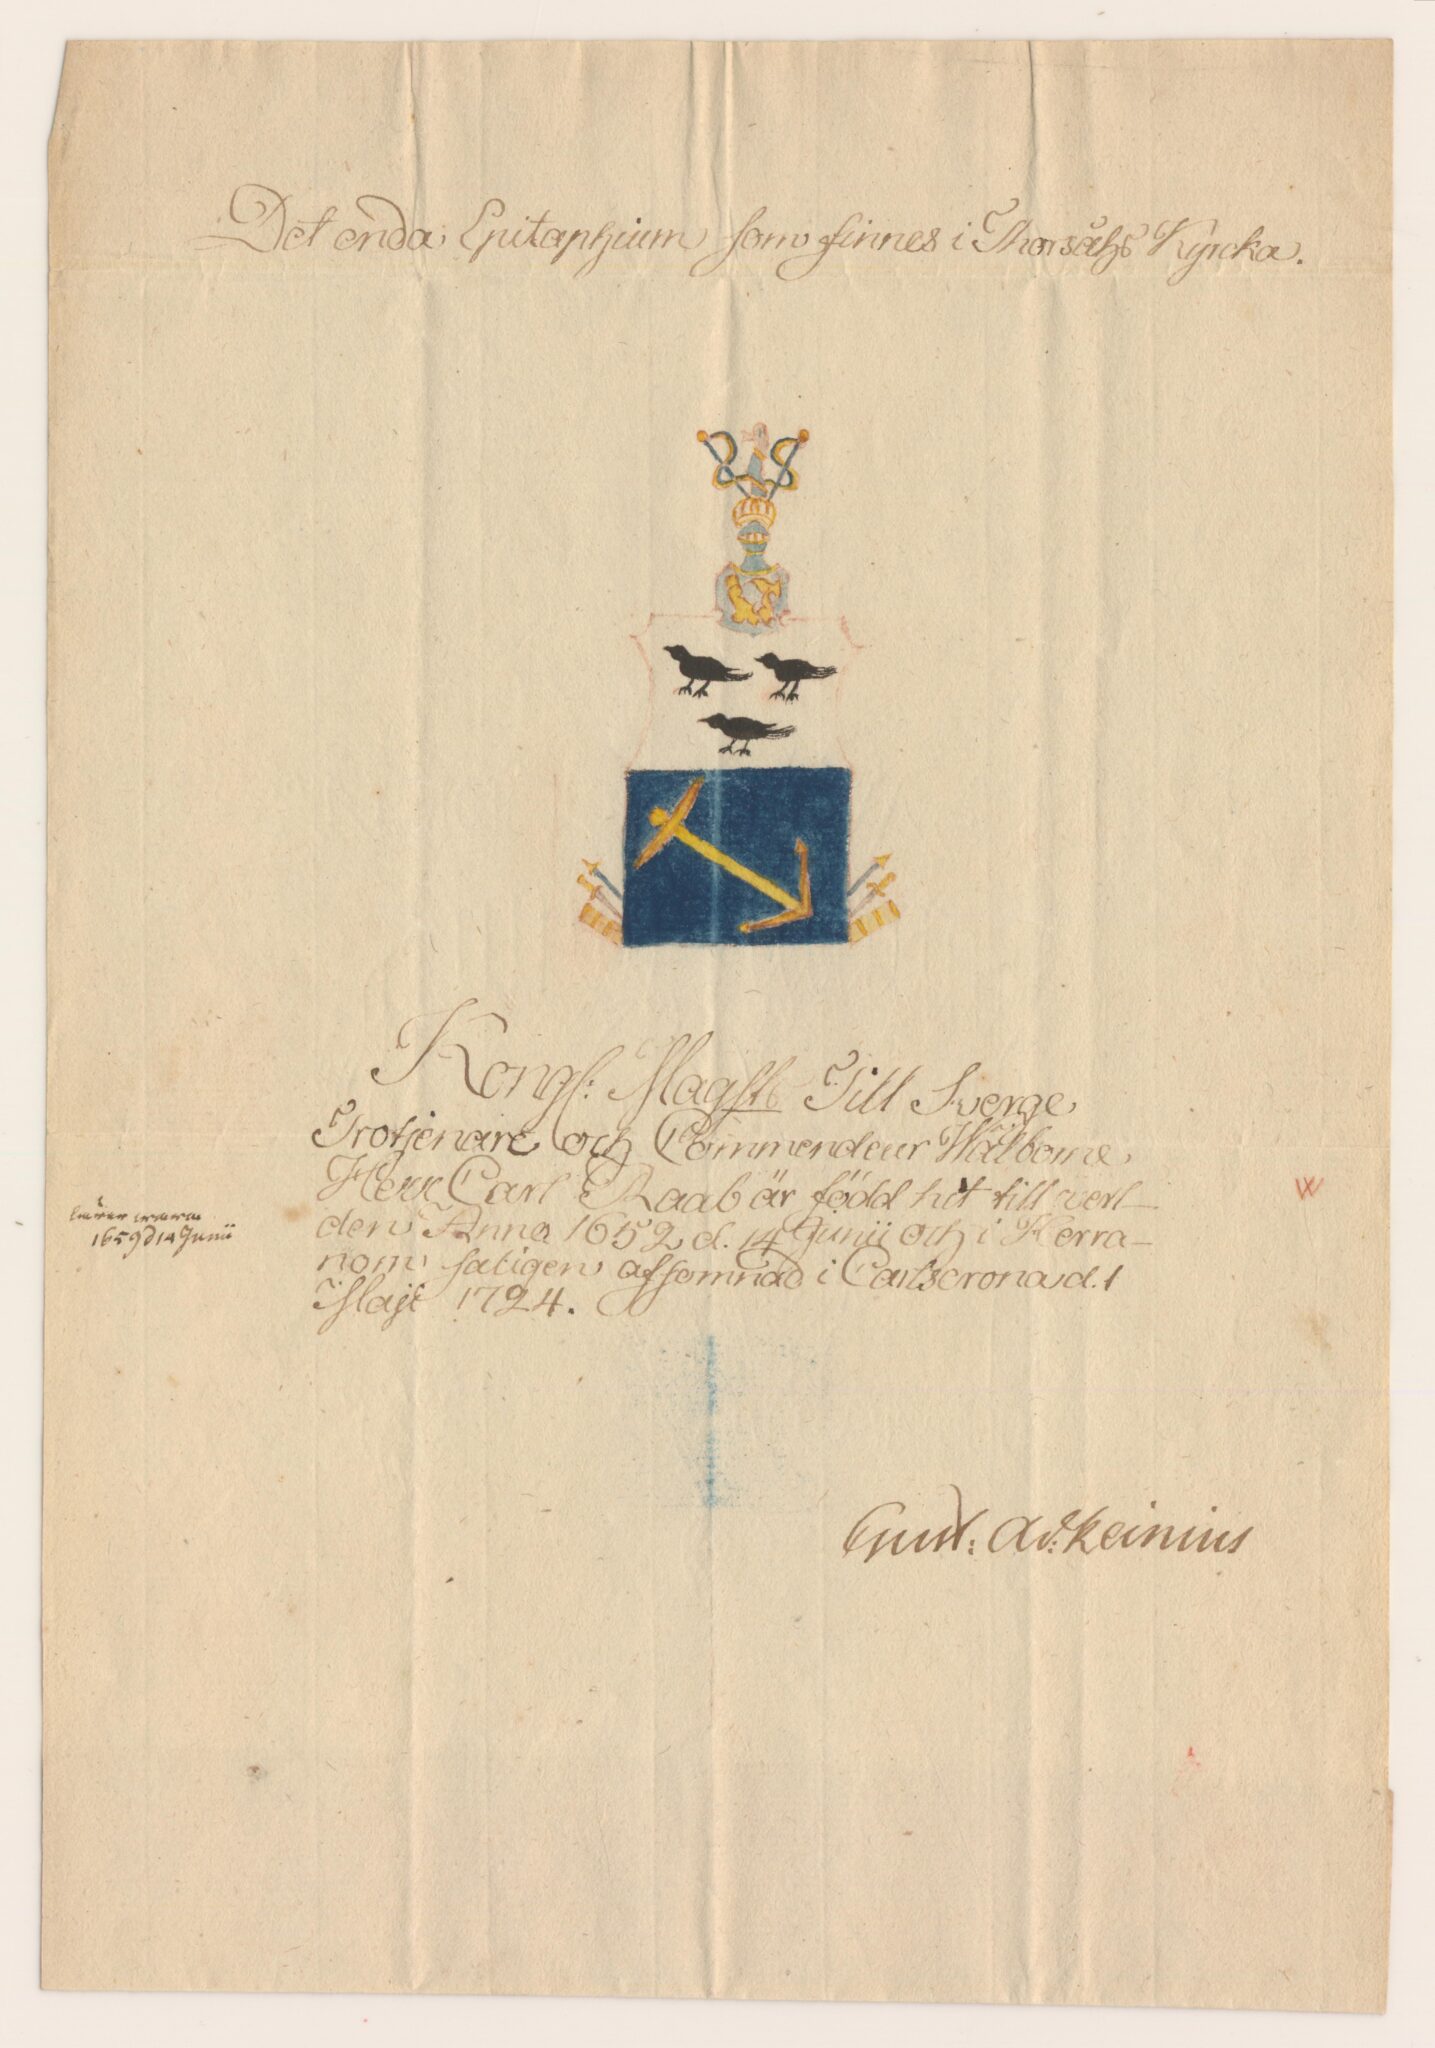 Det enda Epitaphium som finnes i Thorsåhs Kyrcka.
Kongl: Maysts Till Sverge
Trotjenare och Commendeur Wälborne
Herr Carl Raab är född hit till verl-
den Anno 1652 d. 14 Junii och i Herra-
nom saligen afsomnad i Carlscrona d. 1
Maji 1724.
lärer wara
1659 d 14 Junii
W
Gust: Ad: Reinius